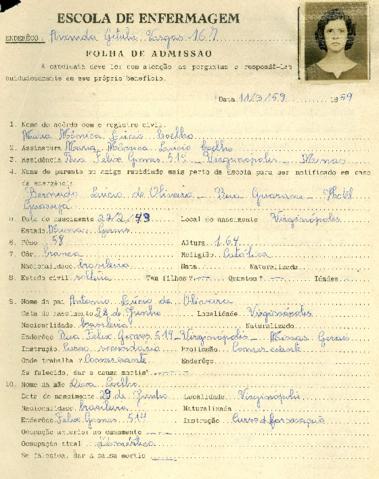 ESCOLA DE ENFERMAGEM
ENDERÊÇO Avenida Getulio Vargas 167
FOLHA DE ADMISSÃO
A candidata deve ler com atenção as perguntas e respondê-las
cuidadosamente em seu próprio benefício.
Data 11/3/59 1959
1. Nome de acôrdo com o registro civil
Maria Mônica Lúcio Coelho
2. Assinatura Maria Mônica Lúcio Coelho
3. Residência Rua Felix Gomes 519 - Virginópolis - Minas
4. Nome do parente ou amigo residindo mais perto da Escola para ser notificado em caso
de emergência
Bernardo Lúcio de Oliveira - Rua Guarani - Hotel
5. Data do nascimento 22/2/ Local do nascimento Virginópolis
Estado Minas Gerais
6. Pêso 58 Altura 1.64
7. Côr branca Religião Católica
Nacionalidade brasileira Nata Naturalizada
8. Estado civil solteira Tem filhos? Quantos? Idades
9. Nome do pai Antonio Lúcio de Oliveira
Data do nascimento de Junho Localidade Virginópolis
Nacionalidade brasileira Naturalizado
Enderêço Rua Felix Gomes 519 - Virginópolis - Minas Gerais
Instrução Curso Profissão Comerciante
Onde trabalha? Comerciante Enderêço
Se falecido, dar a causa mortis
10. Nome da mãe Coelho
Data do nascimento 29 de Junho Localidade Virginópolis
Nacionalidade brasileira Naturalizada
Enderêço Felix Gomes 519 Instrução Curso de formação
Ocupação anterior ao casamento
Ocupação atual doméstica
Se falecida, dar a causa mortis